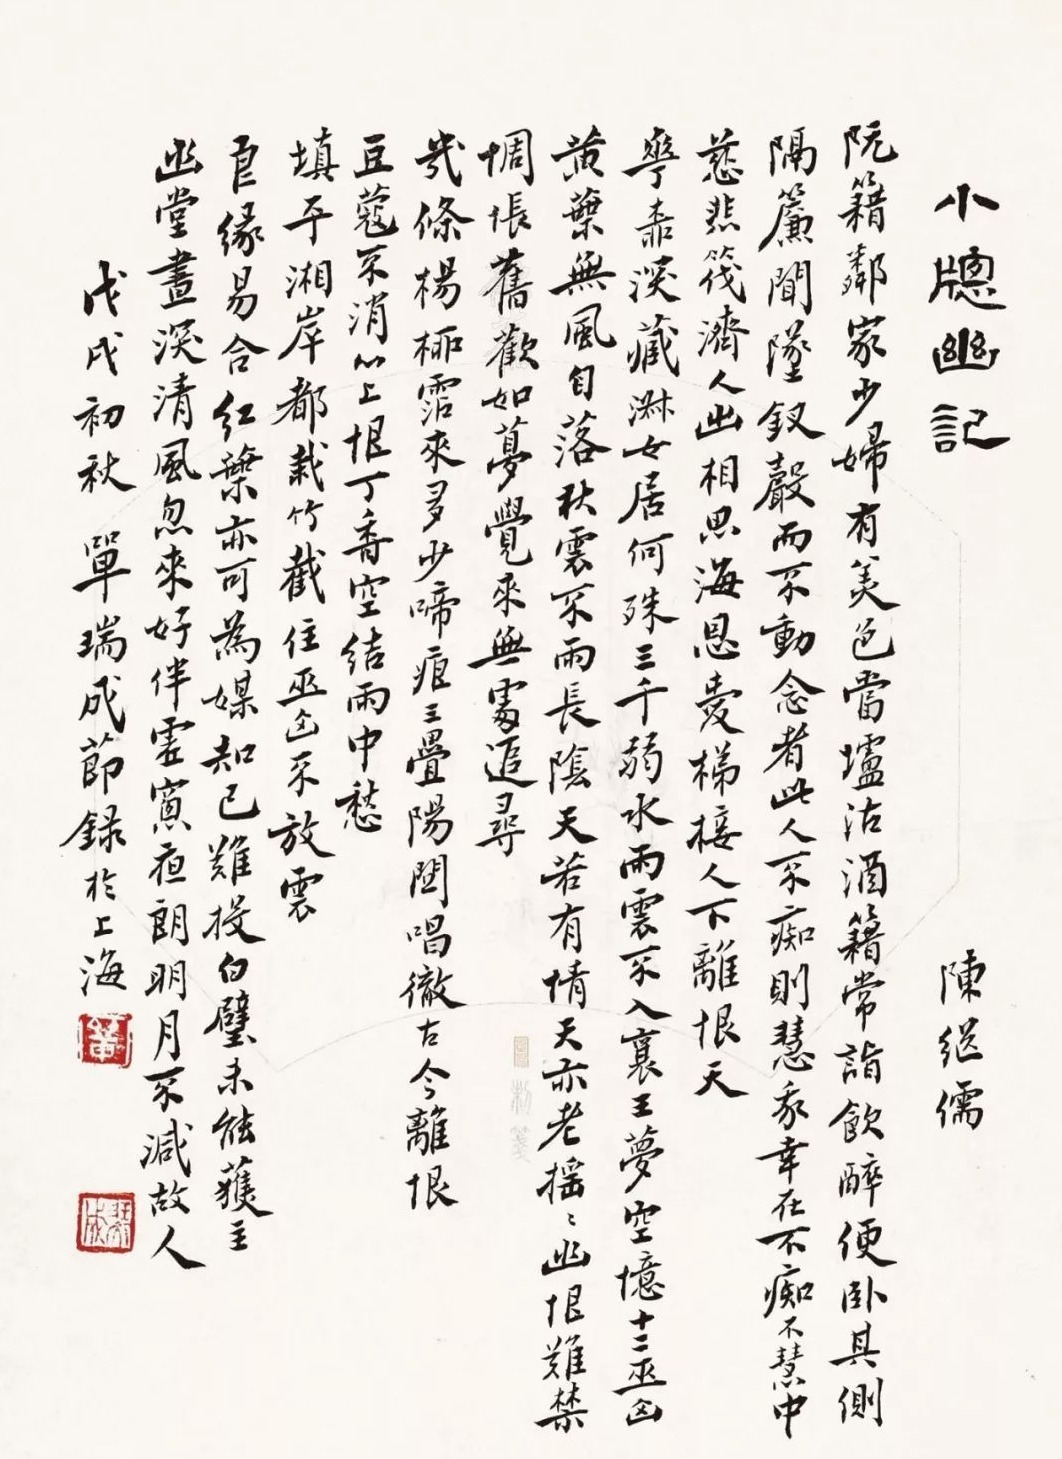 小牕幽記
陳继儒
阮籍鄰家少婦有美色當壚沽酒籍常詣飲醉便卧其側
隔簾聞墜釵聲而不動念者此人不痴則慧我幸在不痴不慧中
慈悲筏濟人出相思海恩愛梯接人下離恨天
花深深藏淑女居何殊三千弱水雨雲不入襄王夢空憶十二巫山
黃葉無風自落秋雲不雨長陰天若有情天亦老摇摇幽恨難禁
惆悵舊歡如夢覺來無處追尋
幾條楊柳霑來多少啼痕三疊陽關唱徹古今離恨
豆蔻不消心上恨丁香空結雨中愁
填平湘岸都栽竹截住巫山不放雲
良緣易合红葉亦可為媒知己難投白璧未能獲主
幽堂晝深清風忽來好伴虛窗夜朗明月不減故人
戊戌初秋 單瑞成節録於上海